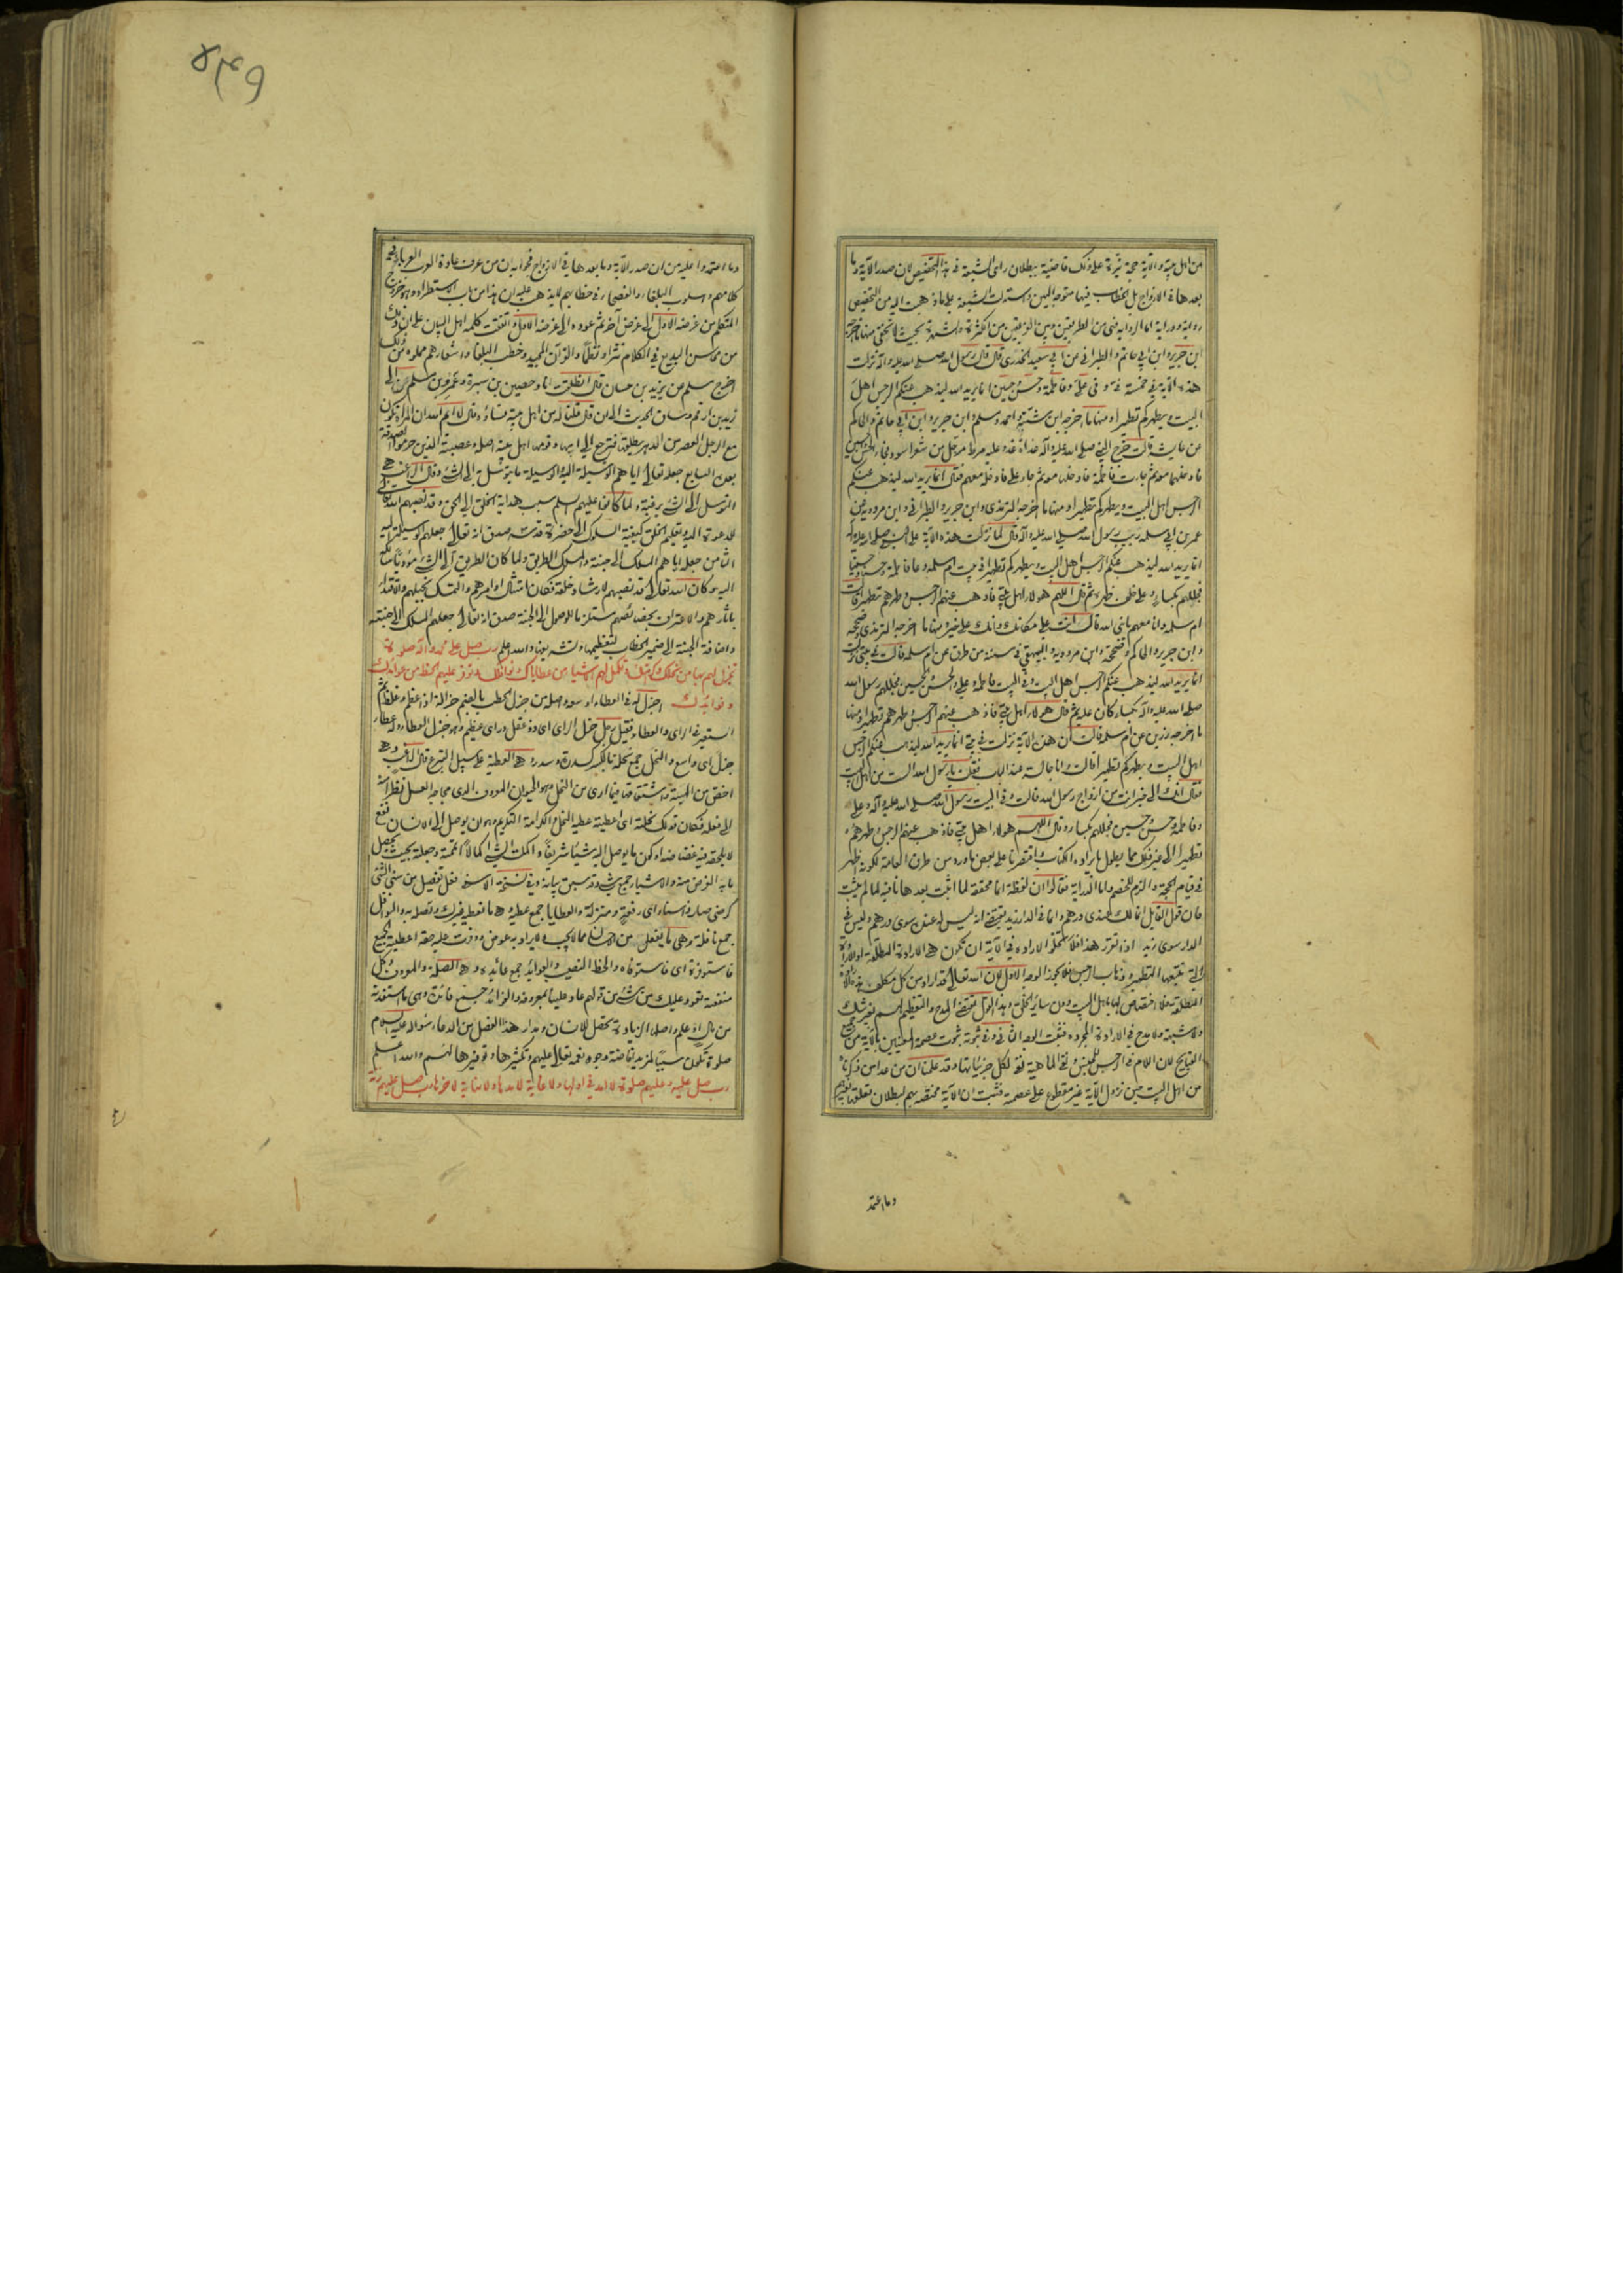 من اهل بيته والآية حجة نيرة على ذلك قاضية ببطلان رأى الشيعة فى هذا التخصيص لان صدر الآية وما
بعدها فى الازواج بل الخطاب فيها متوجه اليهن واستدلت الشيعة على ما ذهبت اليه من التخصيص
رواية ودراية اما الرواية فهى من الطريقين وبين الفريقين من الكثرة والشهرة بحيث لا تخفى منها ما اخرجه
ابن جرير وابن ابى حاتم والطبرانى عن ابى سعيد الخدرى قال قال رسول الله صلى الله عليه وآله نزلت
هذه الآية فى خمسة فىّ وفى على وفاطمة وحسن وحسين انما يريد الله ليذهب عنكم الرجس اهل
البيت ويطهركم تطهيرا ومنها ما اخرجه ابن ابى شيبة واحمد ومسلم وابن جرير وابن ابى حاتم والحاكم
عن عايشة قالت خرج النبى صلى الله عليه وآله غداة غد وعليه مرط مرحل من شعر اسود فجاء الحسن والحسين
فادخلهما معه ثم جاءت فاطمة فادخلها معه ثم جاء على فادخله معهم فقال انما يريد الله ليذهب عنكم
الرجس اهل البيت ويطهركم تطهيرا ومنها ما اخرجه الترمذى وابن جرير والطبرانى وابن مردويه عن
عمر بن ابى سلمه ربيب رسول الله صلى الله عليه وآله قال لما نزلت هذه الآية على النبى صلى الله عليه وآله
انما يريد الله ليذهب عنكم الرجس اهل البيت ويطهركم تطهيرا فى بيت ام سلمه دعا فاطمة وحسنا وحسينا
فجللهم بكساء وعلى خلف ظهره ثم قال اللهم هولاء اهل بيتى فاذهب عنهم الرجس وطهرهم تطهيرا قالت
ام سلمه وانا معهم يا نبى الله قال انت على مكانك وانك على خير ومنها ما اخرجه الترمذى وصححه
وابن جرير والحاكم وصححه وابن مردويه والبيهقى فى سننه من طرق عن ام سلمه قالت فى بيتى نزلت
انما يريد الله ليذهب عنكم الرجس اهل البيت وفى البيت فاطمة وعلى والحسن والحسين فجللهم رسول الله
صلى الله عليه وآله بكساء كان عليه ثم قال هولاء اهل بيتى فاذهب عنهم الرجس وطهرهم تطهيرا ومنها
ما اخرجه رزين عن ام سلمه قالت ان هذه الآية نزلت فى بيتى انما يريد الله ليذهب عنكم الرجس
اهل البيت ويطهركم تطهيرا قالت وانا جالسة عند الباب فقلت يا رسول الله الست من اهل البيت
فقال انك الى خير انت من ازواج رسول الله قالت وفى البيت رسول الله صلى الله عليه وآله وعلى
وفاطمة وحسن وحسين فجللهم بكساء وقال اللهم هولاء اهل بيتى فاذهب عنهم الرجس وطهرهم
تطهيرا الى غير ذلك مما يطول بايراده الكتاب واقتصرنا على بعض ما ورد من طرق العامة لكونه اظهر
فى قيام الحجة والزم للخصم واما الدراية فقالوا ان لفظة انما محققة لما اثبت بعدها نافية لما لم يثبت
فان قول القايل انما لك عندى درهم وانما فى الدار زيد يقتضى انه ليس له عنده سوى درهم وليس فى
الدار سوى زيد اذا تقرر هذا فلا تخلو الارادة فى الآية ان تكون هى الارادة المطلقة او الارادة
التى يتبعها التطهير وذهاب الرجس فلا يجوز الوجه الاول لان الله تعالى قد اراد من كل مكلف هذه الارادة
المطلقة فلا اختصاص لها باهل البيت دون ساير الخلق وهذا القول يقتضى المدح والتعظيم لهم بغير شك
ولا شبهة ولا مدح فى الارادة المجردة فثبت الوجه الثانى وفى ثبوته ثبوت عصمة المعنيين بالآية من جميع
القبايح لان اللام فى الرجس للجنس ونفى الماهية نفى لكل جزئياتها وقد علمنا ان من عدا من ذكرناه
من اهل البيت حين نزول الآية غير مقطوع على عصمته فثبت ان الآية مختصة بهم لبطلان تعلقها بغيرهم
وما اعتمد
٥٣٩
وما اعتمدوا عليه من ان صدر الآية وما بعدها فى الازواج فجوابه ان من عرف عادة العرب العرباء فى
كلامهم واسلوب البلغاء والفصحاء فى خطابهم لا يذهب عليه ان هذا من باب الاستطراد وهو خروج
المتكلم من غرضه الاول الى غرض آخر ثم عوده الى غرضه الاول واتفقت كلمة اهل البيان على ان ذلك
من محاسن البديع فى الكلام نثرا ونظما والقرآن المجيد وخطب البلغاء واشعارهم مملوة من ذلك
اخرج مسلم عن يزيد بن حسان قال انطلقت انا وحصين بن سبرة وعمرو بن مسلم الى
زيد بن ارقم وساق الحديث الى ان قال قلنا له من اهل بيته نساؤه قال لا ايم الله ان المراة تكون
مع الرجل العصر من الدهر يطلقها فترجع الى ابيها وقومها اهل بيته اصله وعصبته الذين حرموا الصدقة
بعده السابع جعله تعالى اياهم الوسيلة اليه والوسيلة ما يتوسل به الى الشئ وقال الراغب هى
التوسل الى الشئ برغبة ولما كانوا عليهم السلم سبب هداية الخلق الى الحق وقد نصبهم الله تعالى
للدعوة اليه وتعليم الخلق كيفية السلوك الى حضرة قدسه صدق انه تعالى جعلهم الوسيلة اليه
الثامن جعله اياهم المسلك الى جنته والمسلك الطريق ولما كان الطريق الى الشئ مؤديا سالكه
اليه وكان الله تعالى قد نصبهم لارشاد خلقه فكان امتثال اوامرهم والتمسك بحبلهم والاقتداء
بآثارهم والاعتراف بخصائصهم مستلزما للوصول الى الجنة صدق انه تعالى جعلهم المسلك الى جنته
واضافة الجنة الى ضمير الخطاب لتعظيمها وتشريفها والله اعلم رب صل على محمد وآله صلوة
تجزل لهم بها من نحلك وكرامتك وتكمل لهم الاشياء من عطاياك ونوافلك وتوفر عليهم الحظ من عوائدك
وفوائدك اجزل له فى العطاء اوسعه واصله من جزل الحطب بالضم جزالة اذا عظم وغلظ ثم
استعير فى الراى والعطاء فقيل رجل جزل الراى اى ذو عقل وراى عظيم وهو جزل العطاء وله عطاء
جزل اى واسع والنحل جمع نحلة بالكسر كسدرة وسدر هى العطية على سبيل التبرع قال الراغب وهى
اخص من الهبة واشتقاقها فيما ارى من النحل وهو الحيوان المعروف الذى مجاجه العسل نظرا منه
الى فعله فكان قولك نحلته اى اعطيته عطية النحل والكرامة التكريم وهو ان يوصل الى الانسان نفع
لا يلحقه فيه غضاضة او كون ما يوصل اليه شيئا شريفا واكملت الشئ اكمالا اتممته وجعلته بحيث يحصل
ما به الغرض منه والاشياء جمع شئ وقد سبق بيانه وفى نسخة الاسنى افعل تفضيل من سنى الشئ
كرضى صار ذا سناء اى رفعة ومنزلة والعطايا جمع عطية وهى ما تعطيه غيرك وتصله به والنوافل
جمع نافلة وهى ما يفعل من الاحسان مما لا يجب ولا يراد به عوض ووفرت عليه حقه اعطيته الجميع
فاستوفره اى فاستوفاه والحظ النصيب والعوائد جمع عائدة وهى الصلة والمعروف وكل
منفعة تعود عليك من شئ من قولهم عاد علينا بمعروفه والفوائد جمع فائدة وهى ما استفدته
من مال او علم واصلها الزيادة تحصل للانسان ومدار هذا الفصل من الدعاء سؤاله عليه السلام
صلوة تكون سببا لمزيد افاضة وجوه نعمه تعالى عليهم وتكثيرها وتوفيرها لهم والله اعلم
رب صل عليه وعليهم صلوة لا امد فى اولها ولا غاية لامدها ولا نهاية لآخرها رب صل عليهم زنة